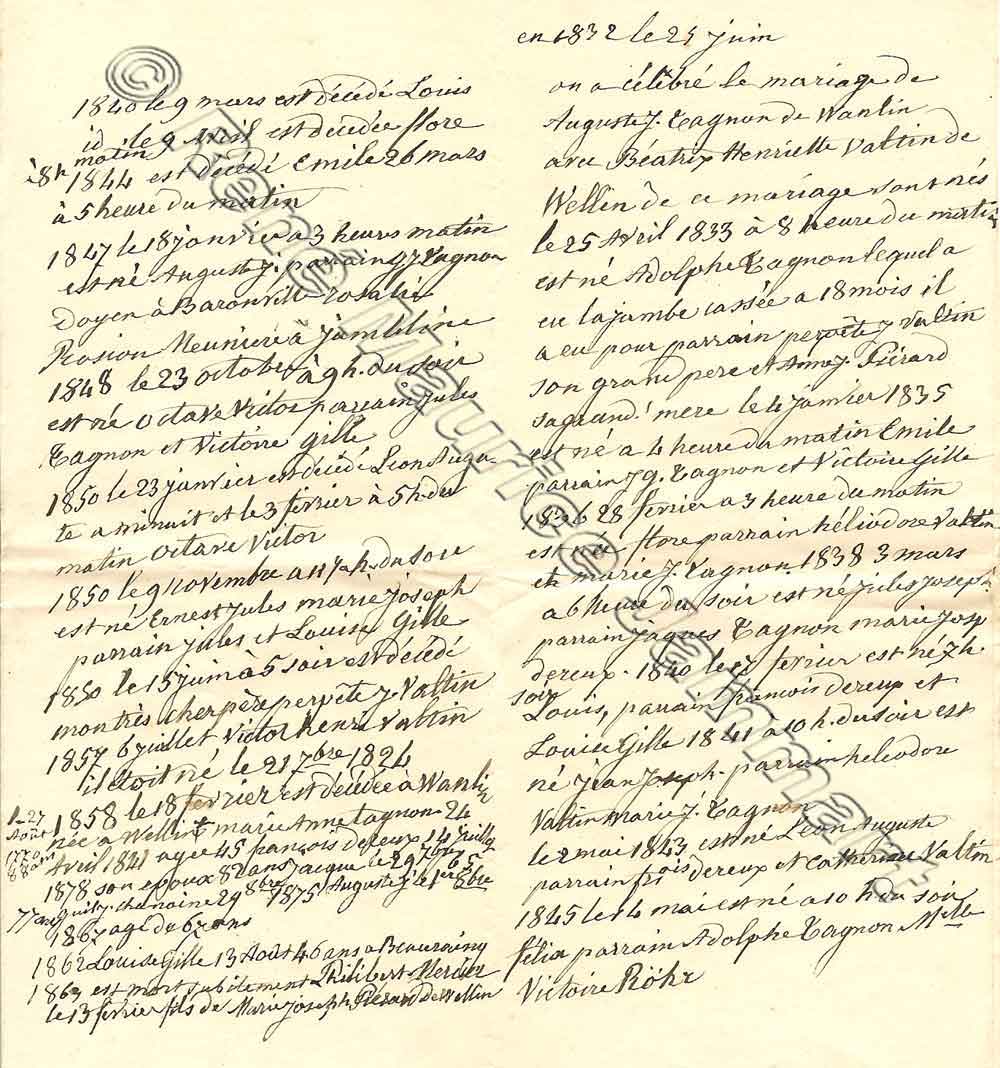 1840 le 9 mars est décédé Louis
id le 9 Avril est décédée flore
à 8h matin
1844 est décédé Emile 26 mars
à 5 heure du matin
1847 le 18 janvier a 3 heurs matin
est né Auguste J. parrain J Tagnon
Doyen à Baronville rosalie
Rosion Meunière à jambline
1848 le 23 octobre à 9 h. du soir
est né Octave Victor parrain jules
Tagnon et Victoire gille
1850 le 23 janvier est décédé Leon Augu-
te a minuit et le 3 fevrier à 5 h. du
matin Octave Victor
1850 le 9 Novembre a h. du soir
est né Ernest jules marie joseph
parrain jules et Louise Gille
1850 le 15 juin à 5 soir est décédé
mon très cher père pervête J. Valtin
1857 6 juillet Victor henri Valtin
il étoit né le 21 7bre 1824
1858 le 18 fevrier est décédée à Wanlin
née a Wellin marie Anne Tagnon 24
Avril 1841 agée 45 françois dereux 14 juillet
1878 son epoux 8 ans jacque le 29 7bre 65
chanoine 29 8bre 1875 Auguste J. le 1er 8bre
1867 agé de 67 ans
1862 Louise Gille 13 Août 46 ans a Beauraing
1863 est mort subitement Philibert Mercier
le 13 fevrier fils de Marie joseph Piérard de Wellin
1-27
Août
1770
88 ans
77 ans
en 1832 le 25 juin
on a célébré le mariage de
Auguste J. Tagnon de Wanlin
avec Béatrix Henriette Valtin de
Wellin de ce mariage sont nés
le 25 Avril 1833 à 8 heure du matin
est né Adolphe Tagnon lequel a
eu la jambe cassée a 18 mois il
a eu pour parrain pervête J Valtin
son grand pere et Anne J. Piérard
sa grand' mere le 4 janvier 1835
est né a 4 heure du matin Emile
parrain J G. Tagnon et Victoire Gille
1836 28 fevrier a 3 heure du matin
est née flore parrain héliodore Valtin
et marie J. Tagnon. 1838 3 mars
a 6 heure du soir est né jules joseph
parrain jaques Tagnon marie josep
dereux. 1840 le fevrier est né 7 h
soir
Louis, parrain francois dereux et
Louise Gille 1841 a 10 h. du soir est
né jean joseph. parrain heliodore
Valtin marie J. Tagnon
le 2 mai 1843 est né Léon Auguste
parrain frois dereux et Catherine Valtin
1845 le 14 mai est né a 10 h du soir
félix parrain Adolphe Tagnon Melle
Victoire Röhr
© Thémis Maurice Jallmart